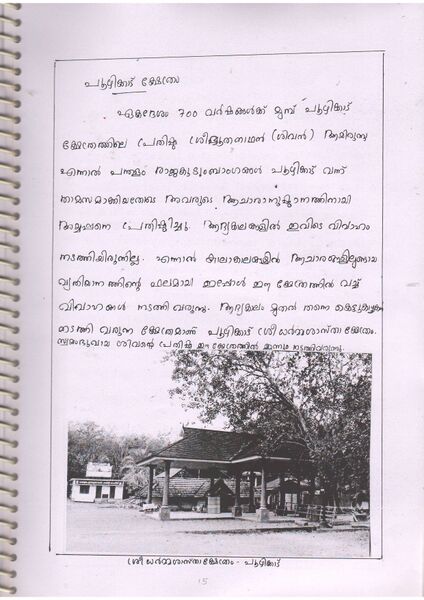 പൂഴിക്കാട് ക്ഷേത്രം
ഏകദേശം 700 വർഷങ്ങൾക്ക് മുമ്പ് പൂഴിക്കാട്
ക്ഷേത്രത്തിലെ പ്രതിഷ്ഠ ശ്രീഭൂതനാഥൻ (ശിവൻ) ആയിരുന്നു
എന്നാൽ പന്തളം രാജകുടുംബാംഗങ്ങൾ പൂഴിക്കാട് വന്ന്
താമസമാക്കിയതോടെ അവരുടെ ആചാരാനുഷ്ഠാനത്തിനായി
അയ്യപ്പനെ പ്രതിഷ്ഠിച്ചു. ആദ്യകാലങ്ങളിൽ ഇവിടെ വിവാഹം
നടത്തിയിരുന്നില്ല. എന്നാൽ കാലാകാലങ്ങളിൽ ആചാരങ്ങളിലുണ്ടായ
വ്യതിയാനത്തിന്റെ ഫലമായി ഇപ്പോൾ ഈ ക്ഷേത്രത്തിൽ വച്ച്
വിവാഹങ്ങൾ നടത്തി വരുന്നു. ആദ്യകാലം മുതൽ തന്നെ കെട്ടുകാഴ്ചകൾ
നടത്തി വരുന്ന ക്ഷേത്രമാണ് പൂഴിക്കാട് ശ്രീ ധർമ്മശാസ്താ ക്ഷേത്രം.
സ്വയംഭൂവായ ശിവന്റെ പ്രതിഷ്ഠ ഈ ക്ഷേത്രത്തിൽ ഇന്നും നടത്തിവരുന്നു.
ശ്രീ ധർമ്മശാസ്താ ക്ഷേത്രം - പൂഴിക്കാട്
15